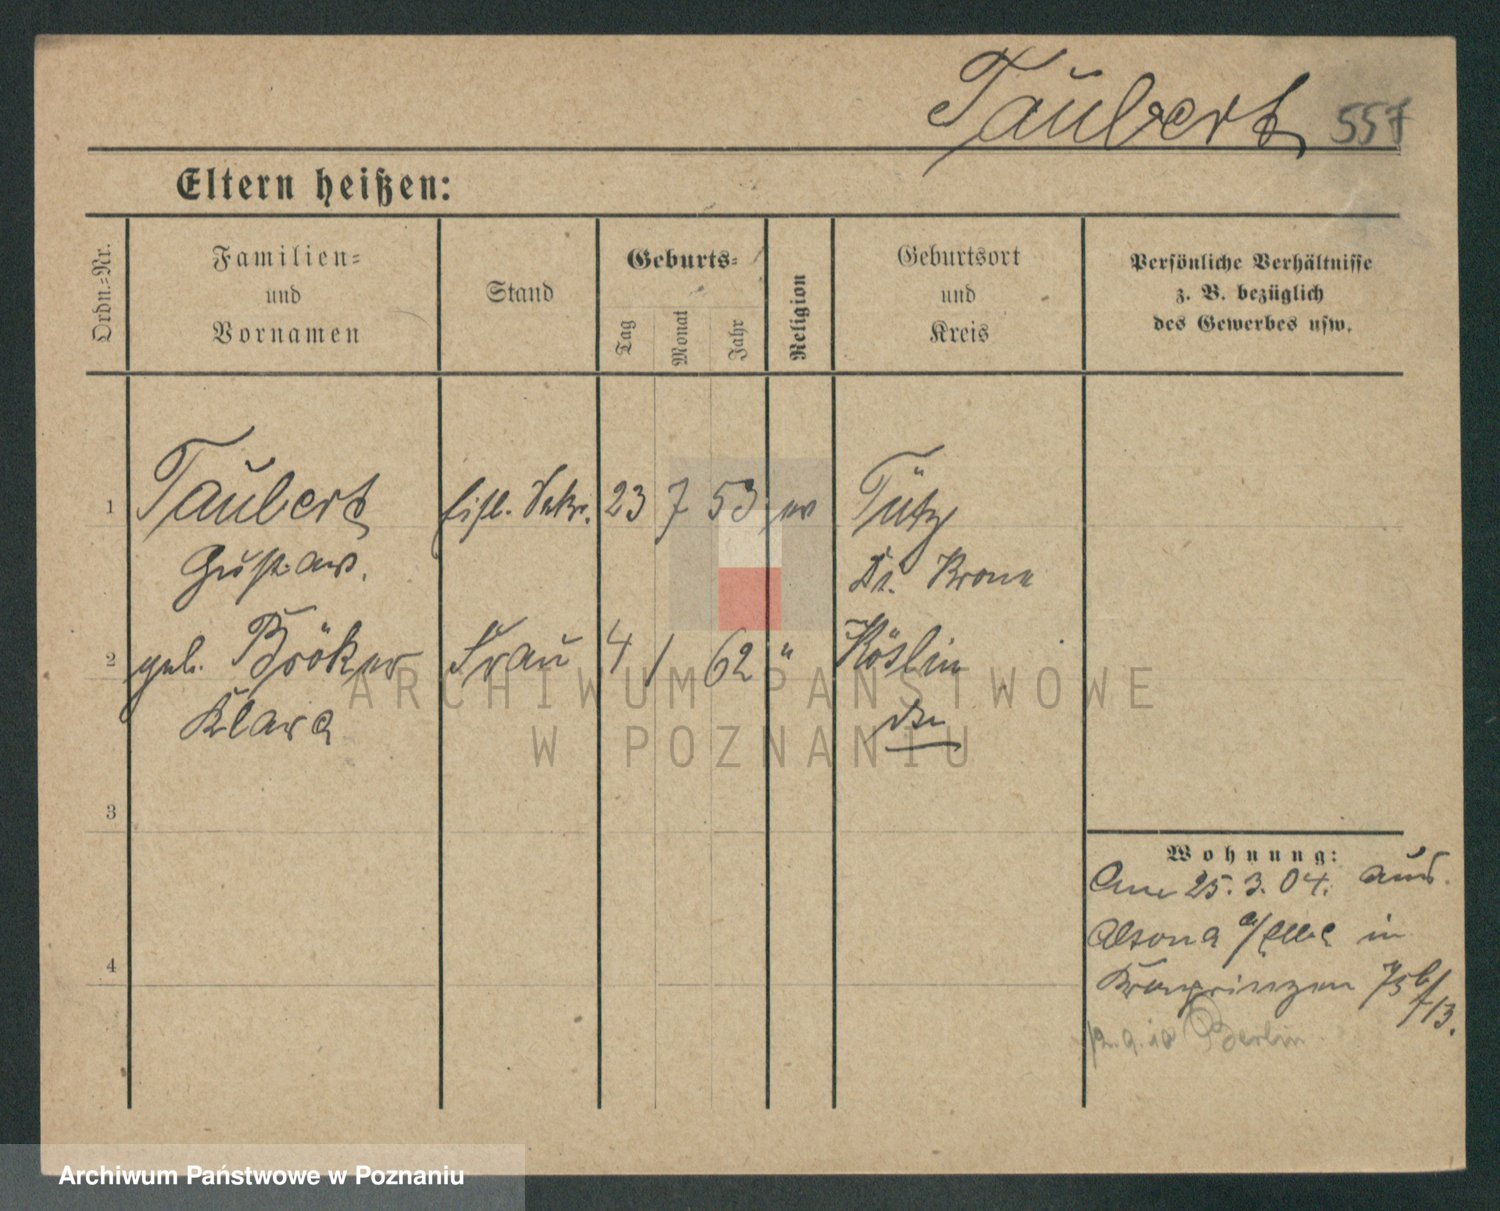 Taubert 557
Eltern heißen:
Ordn.-Nr.
Familien-
und
Vornamen
Stand
Geburts-
Tag
Monat
Jahr
Religion
Geburtsort
und
Kreis
Persönliche Verhältnisse
z. B. bezüglich
des Gewerbes usw.
1 Taubert Eisb. Sekr. 23 7 53 ev Tütz
Gustav. Dt. Krone
2 geb. Bröker Frau 4 1 62 " Köslin
Klara
3
4
Wohnung:
Am 25. 3. 04. aus.
Altona a/Elbe in
Kronprinzen 75 b/
13.
Berlin
ARCHIWUM PAŃSTWOWE
W POZNANIU
Archiwum Państwowe w Poznaniu